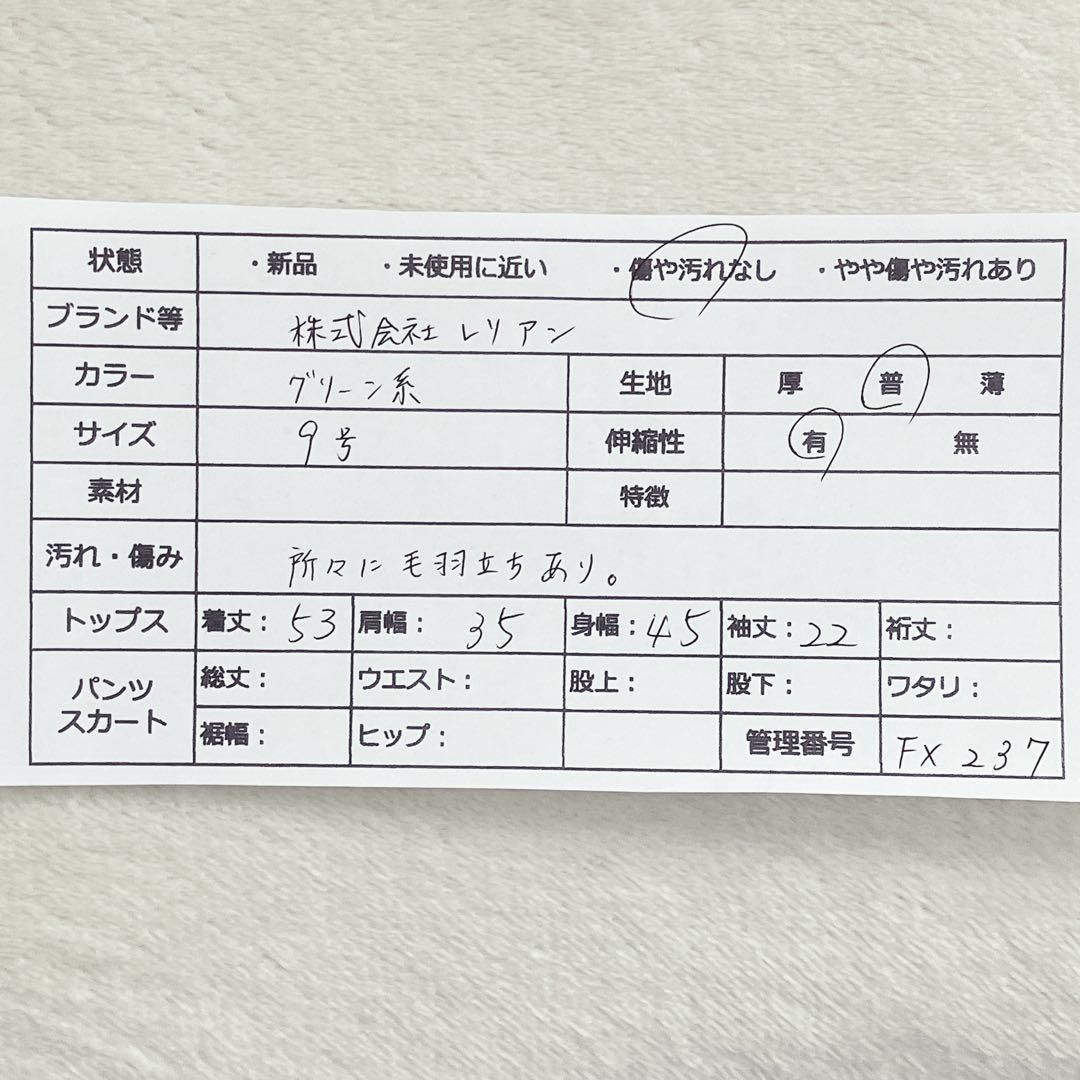 状態 ・新品 ・未使用に近い ・傷や汚れなし ・やや傷や汚れあり
ブランド等 株式会社レリアン
カラー グリーン系 生地 厚 普 薄
サイズ 9号 伸縮性 有 無
素材 特徴
汚れ・傷み 所々に毛羽立ちあり。
トップス 着丈：53 肩幅：35 身幅：45 袖丈：22 裄丈：
パンツ スカート 総丈： ウエスト： 股上： 股下： ワタリ：
裾幅： ヒップ： 管理番号 FX237